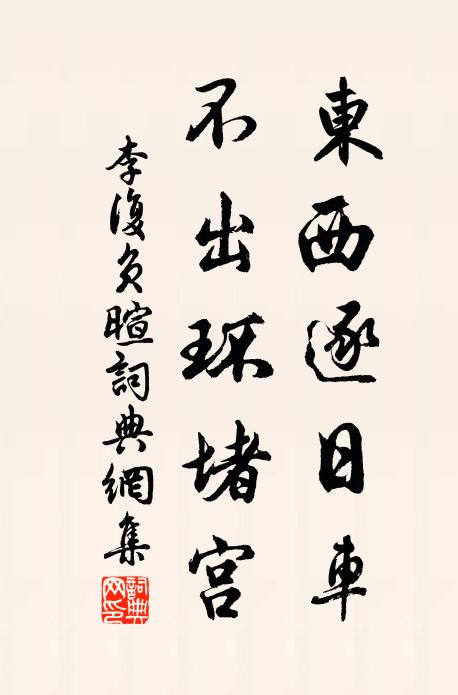 東西逐日車
不出环堵宫
李復负暄詞典網集
詞典网印